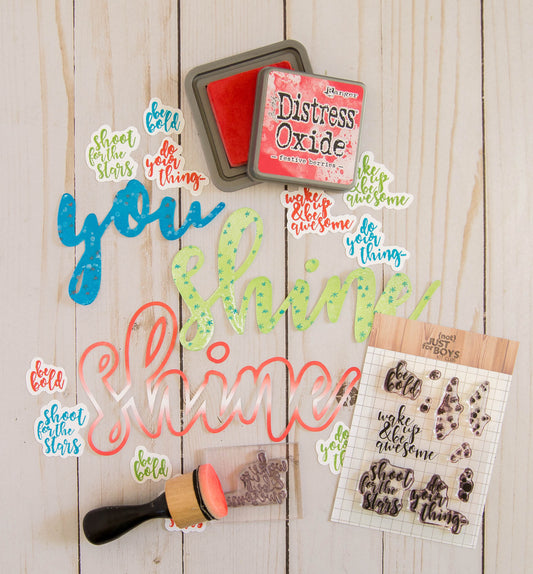 be
bold
shoot
for the
stars
do
your
thing~
ranger
Distress
Oxide
~ festive berries ~
wake
up
&be
awesome
wake
up
&be
awesome
do
your
thing~
you
shine
shine
be
bold
shoot
for the
stars
be
bold
do
(not)
JUST
for BOYS
be
bold
wake
up
&be
awesome
shoot
for the
stars
do
your
thing~